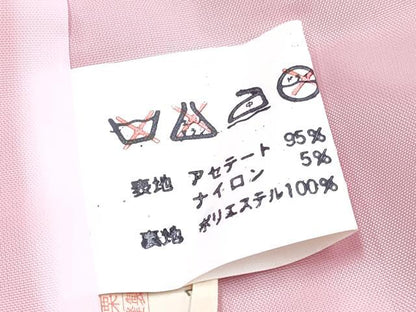 表地 アセテート 95%
ナイロン 5%
裏地 ポリエステル100%